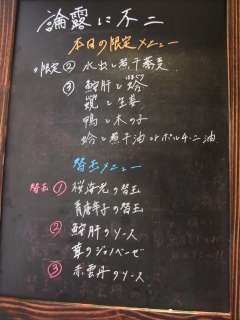 論露に不二
本日の限定メニュー
限定② 水出し煮干蕎麦
③ 鮟肝と蛤
と生姜
鴨と木の子
蛤と煮干油 or ポルチーニ油
替玉メニュー
替玉① 桜海老の替玉
青唐辛子の替玉
② 鮟肝のソース
茸のジェノベーゼ
③ 赤雲丹のソース